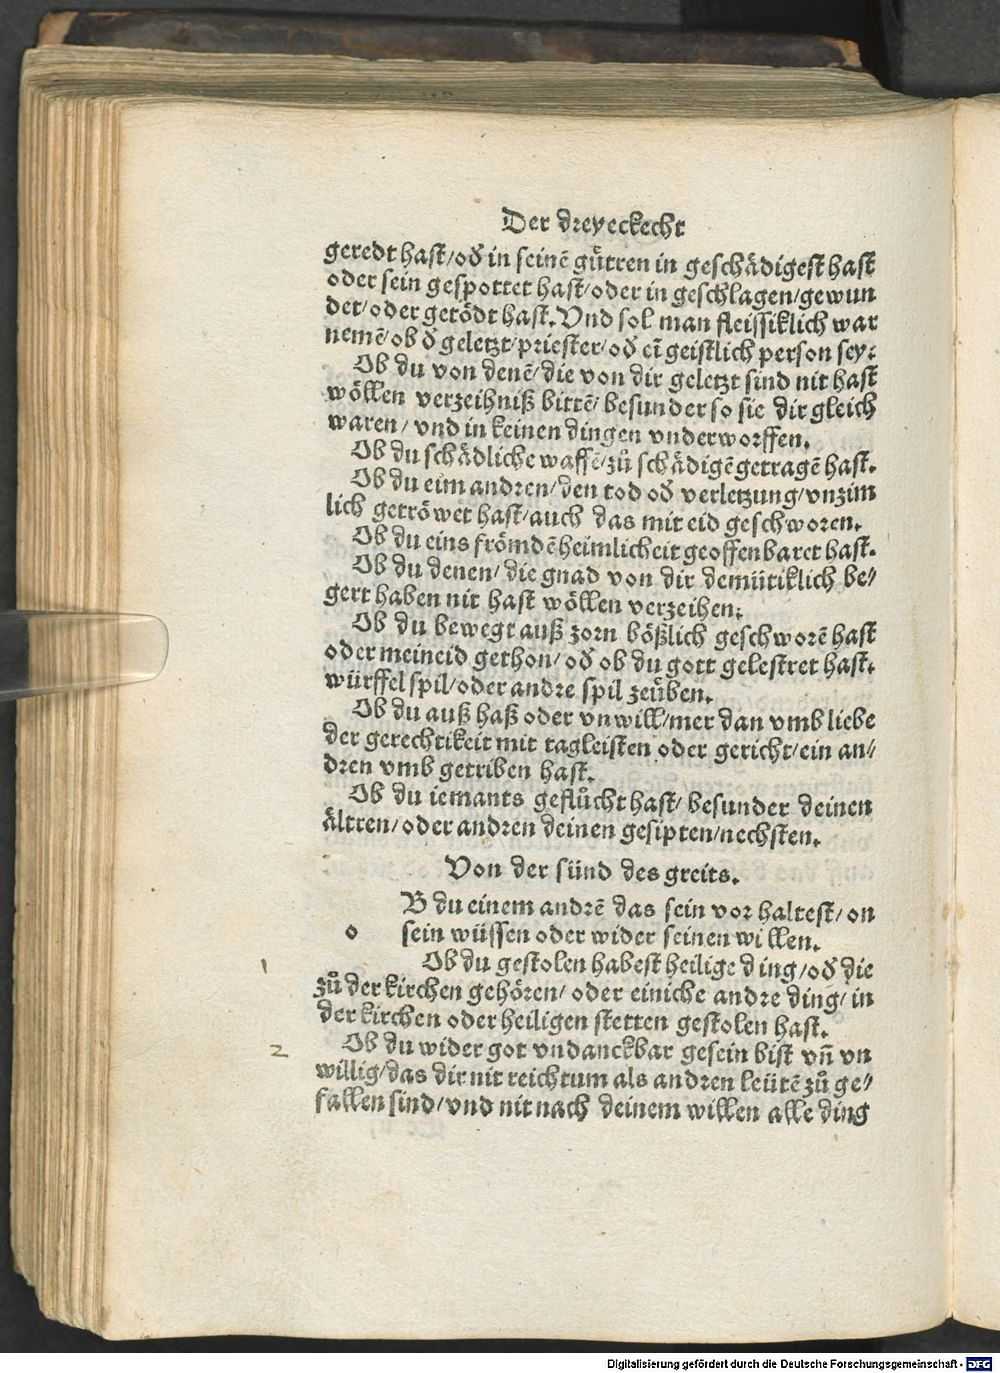 Der dreyeckecht
geredt hast/od̕ in seinē guͤtren in geschaͤdigest hast
oder sein gespottet hast/oder in geschlagen/gewun
det/oder getoͤdt hast. Vnd sol man fleissiklich war
nemē/ob d̕ geletzt/priester/od̕ eī geistlich person sey.
Ob du von denē/die von dir geletzt sind nit hast
woͤllen verzeihniß bittē/besunder so sie dir gleich
waren/vnd in keinen dingen vnderworffen.
Ob du schaͤdliche waffē/zuͦ schaͤdigē getragē hast.
Ob du eim andren/den tod od̕ verletzung/vnzim
lich getroͤwet hast/auch das mit eid geschworen.
Ob du eins froͤmdē heimlicheit geoffenbaret hast.
Ob du denen/die gnad von dir demütiklich be/
gert haben nit hast woͤllen verzeihen.
Ob du bewegt auß zorn boͤßlich geschworē hast
oder meineid gethon/od̕ ob du gott gelestret hast.
würffel spil/oder andre spil zeüben.
Ob du auß haß oder vnwill/mer dan vmb liebe
der gerechtikeit mit tagleisten oder gericht/ein an/
dren vmb getriben hast.
Ob du iemants gefluͦcht hast/besunder deinen
aͤltren/oder andren deinen gesipten/nechsten.
Von der sünd des greits.
o B du einem andrē das sein vor haltest/on
sein wüssen oder wider seinen willen.
1 Ob du gestolen habest heilige ding/od̕ die
zuͦ der kirchen gehoͤren/oder einiche andre ding/in
der kirchen oder heiligen stetten gestolen hast.
2 Ob du wider got vndanckbar gesein bist vn̄ vn
willig/das dir nit reichtum als andren leütē zuͦ ge/
fallen sind/vnd nit nach deinem willen alle ding
Digitalisierung gefördert durch die Deutsche Forschungsgemeinschaft - DFG